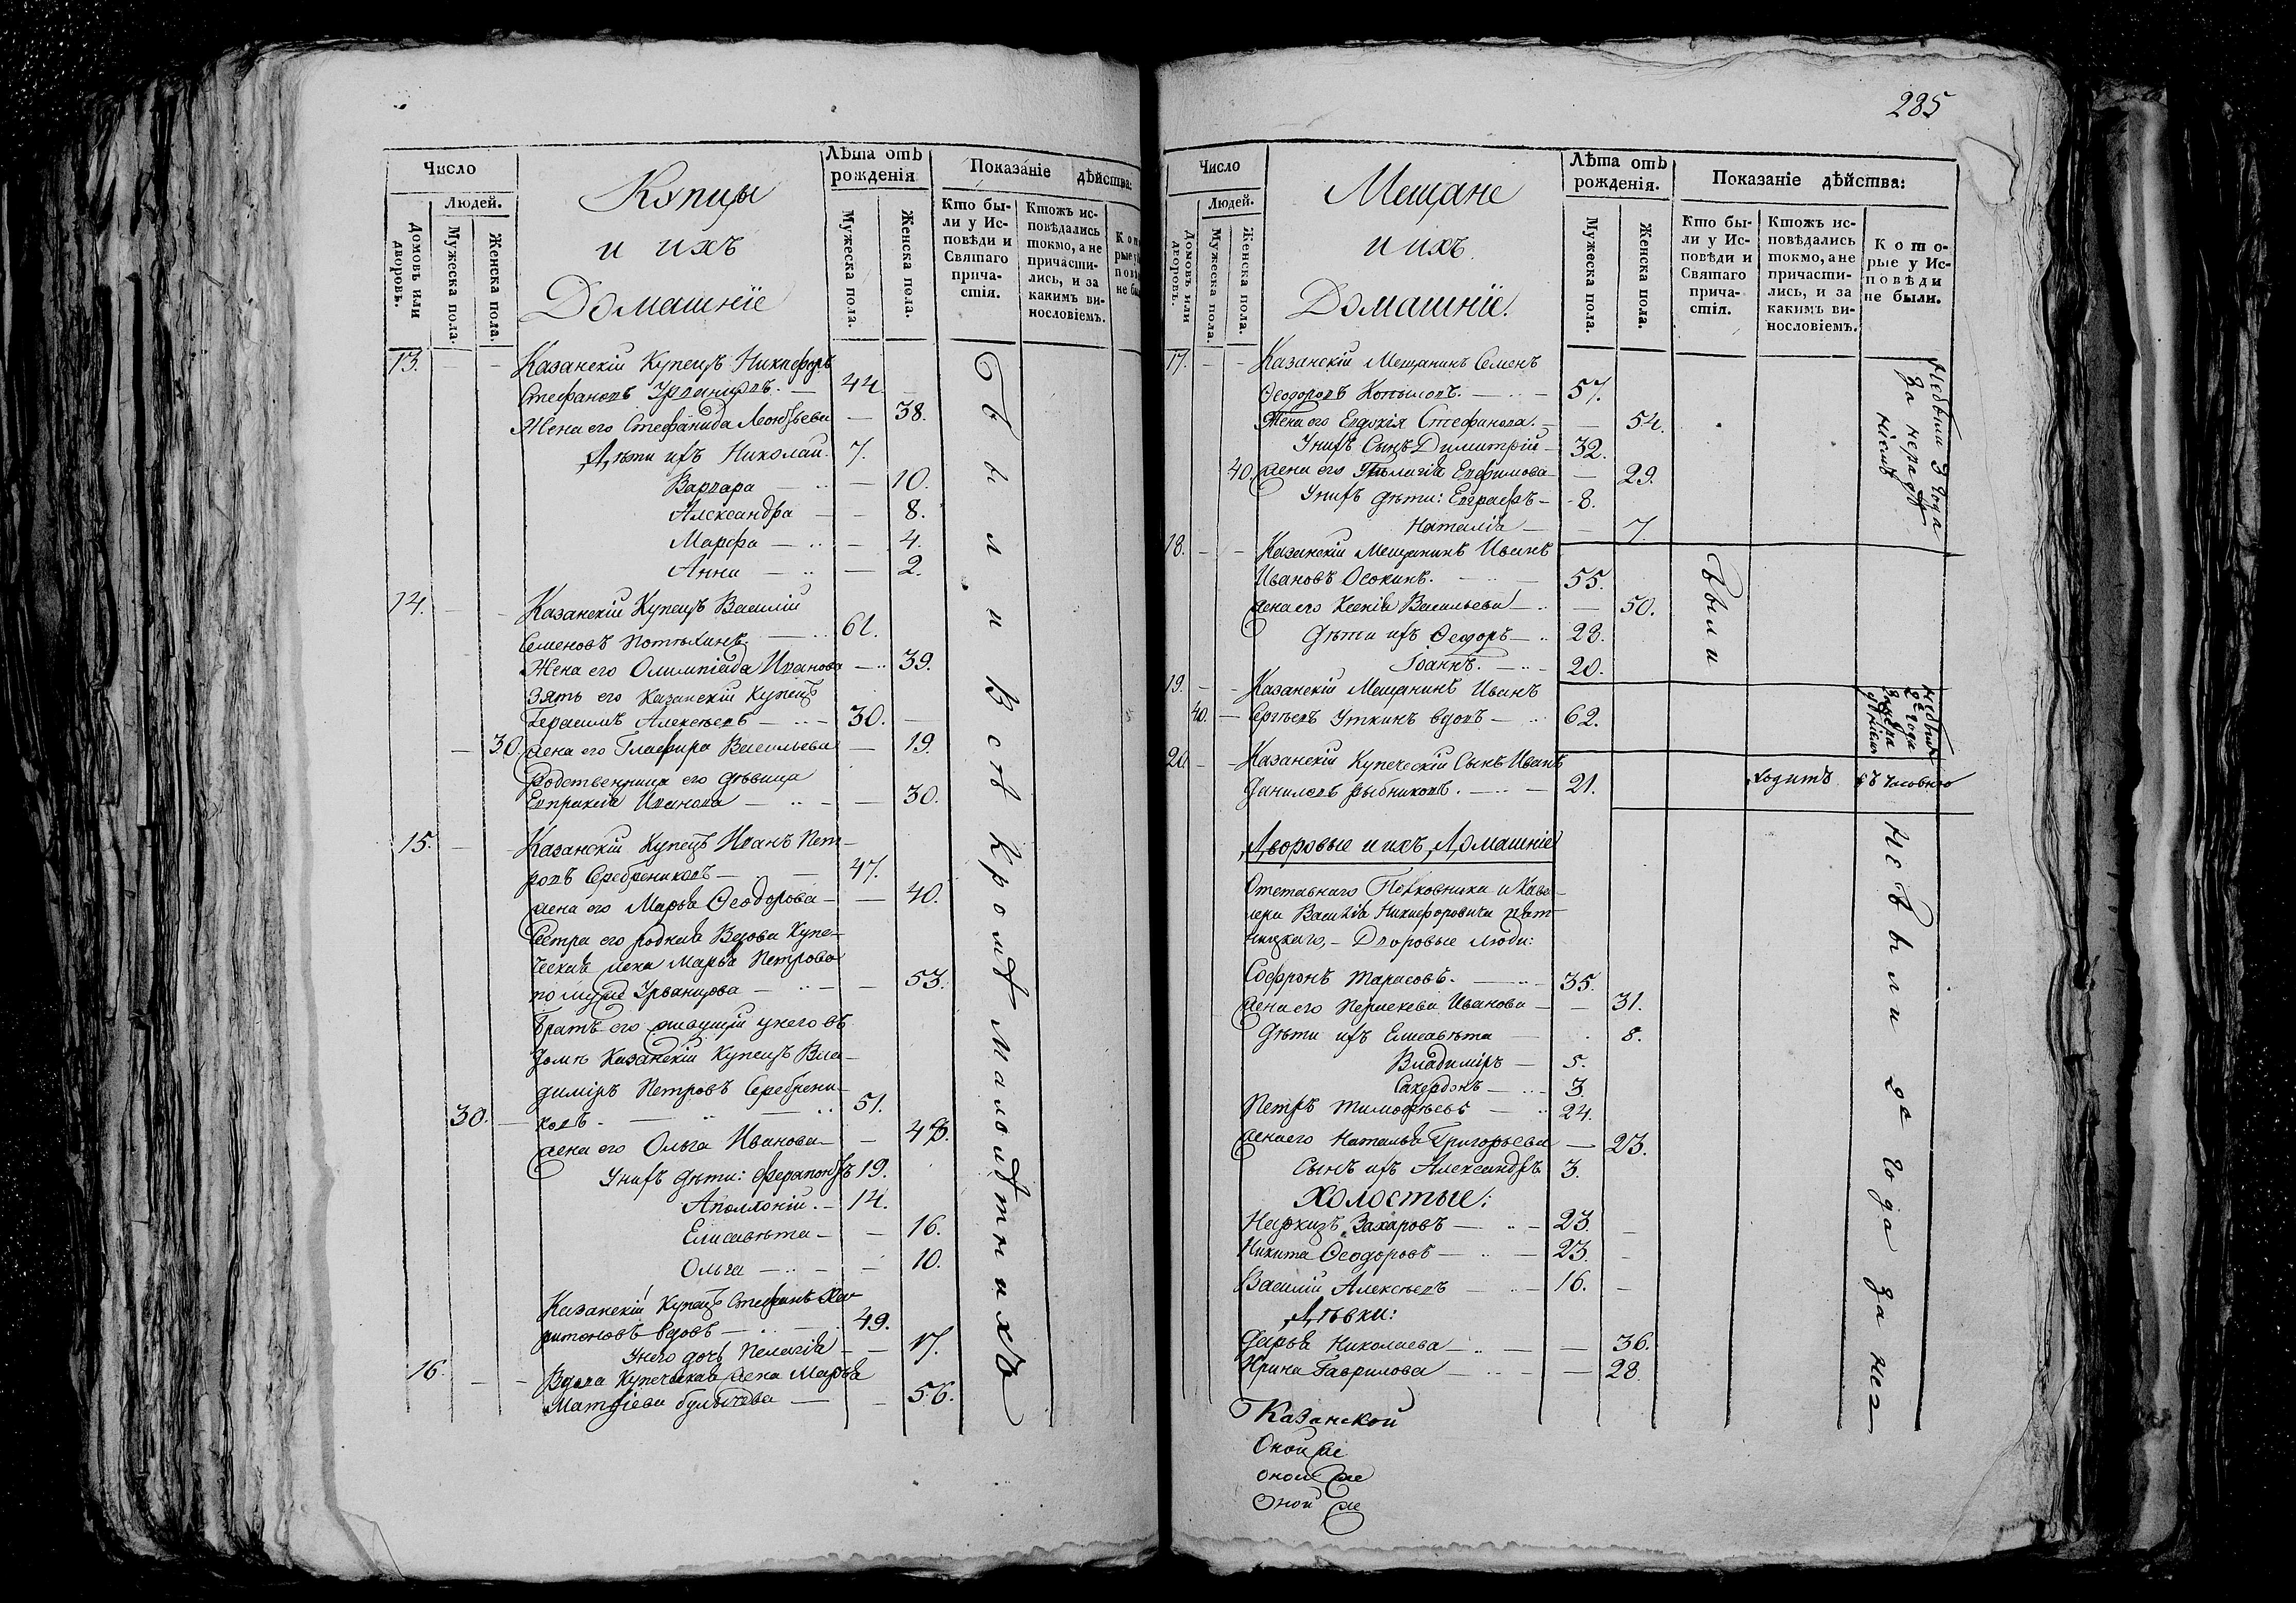 Число
Людей.
Домовъ или дворовъ.
Мужеска пола.
Женска пола.
Купцы
и ихъ
Домашніе
Лѣта отъ рожденія
Мужеска пола.
Женска пола.
Показаніе дѣйства:
Кто бы-
ли у Ис-
повѣди и
Святаго
прича-
стія.
Ктожъ ис-
повѣдались
токмо, а не
причасти-
лись, и за
какимъ ви-
нословіемъ.
13. — — Казанскій Купецъ Никифоръ
Стефановъ Урванцовъ. — 44.
Жена его Стефанида Леонтьева — 38.
Дѣти ихъ Николай. 7.
Варвара — 10.
Александра — 8.
Марфа — 4.
Анна — 2.
14. — — Казанскій Купецъ Василій
Семеновъ Потѣхинъ. — 61.
Жена его Олимпіада Иванова — 39.
Зять его Казанскій Купецъ
Герасимъ Алексѣевъ — 30. —
— 30. жена его Глафира Васильева — 19.
Родственница его дѣвица
Евпраксія Иванова — 30.
15. — Казанскій Купецъ Иванъ Пет-
ровъ Серебрениковъ — 47.
жена его Марья Ѳеодорова — 40.
Сестра его родная Вдова Купе-
ческая жена Марья Петрова
по мужѣ Урванцова — 53.
Братъ его живущій у него въ
домѣ Казанскій Купецъ Вла-
димiръ Петровъ Серебрени-
30. — ковъ. — 51.
жена его Ольга Иванова — 48.
У нихъ дѣти: Ферапонтъ 19.
Аполлоній. — 14.
Елисавѣта — 16.
Ольга — 10.
Казанскій Купецъ Стефанъ Ха-
ритоновъ вдовъ — 49.
У него дочь Пелагія — 17.
16. — — Вдова Купеческая жена Марья
Матѳіева Булычева — 56.
Были Всѣ Кромѣ Малолѣтнихъ
285
Число
Людей.
Домовъ или дворовъ.
Мужеска пола.
Женска пола.
Мещане
и ихъ
Домашніе.
Лѣта отъ рожденія.
Мужеска пола.
Женска пола.
Показаніе дѣйства:
Кто бы-
ли у Ис-
повѣди и
Святаго
прича-
стія.
Ктожъ ис-
повѣдались
токмо, а не
причасти-
лись, и за
какимъ ви-
нословіемъ.
Кото-
рые у Ис-
повѣди
не были.
17. — — Казанскій Мещанинъ Семенъ
Ѳеодоровъ Копыловъ. — 57.
Жена его Евдокія Стефанова. — 54.
У нихъ Сынъ Димитрій — 32.
40. жена его Пелагія Евфимова — 29.
У нихъ дѣти: Евграфъ — 8.
Наталія — 7.
Не были 3 года
за нерадѣ
ніемъ
18. — — Казанскій Мещанинъ Иванъ
Ивановъ Осокинъ. — 55.
жена его Ксенія Васильева — 50.
Дѣти ихъ Ѳеодоръ — 23.
Іоаннъ. — 20.
были
19. — — Казанскій Мещанинъ Иванъ
40. — Сергѣевъ Уткинъ вдовъ — 62.
20. — — Казанскій Купеческій Сынъ Иванъ
Даниловъ Рыбниковъ. — 21.
ходитъ въ часовню
Дворовые и ихъ Домашніе
Отставнаго Полковника и Кава-
лера Василія Никифоровича Пят-
ницкаго, — Дворовые люди:
Софронъ Тарасовъ. — 35.
жена его Параскева Иванова — 31.
Дѣти ихъ Елисавѣта 8.
Владиміръ — 5.
Сакердонъ — 3.
Петръ Тимофѣевъ — 24.
жена его Наталья Григорьева — 23.
Сынъ ихъ Александръ 3.
Холостые:
Наркизъ Захаровъ — 23. —
Никита Ѳеодоровъ — 23. —
Василій Алексѣевъ — 16. —
Дѣвки:
Дарья Николаева — 36.
Ирина Гаврилова — 28.
Не были 2а года за нег
Казанской
Оной же
оной же
Оной же